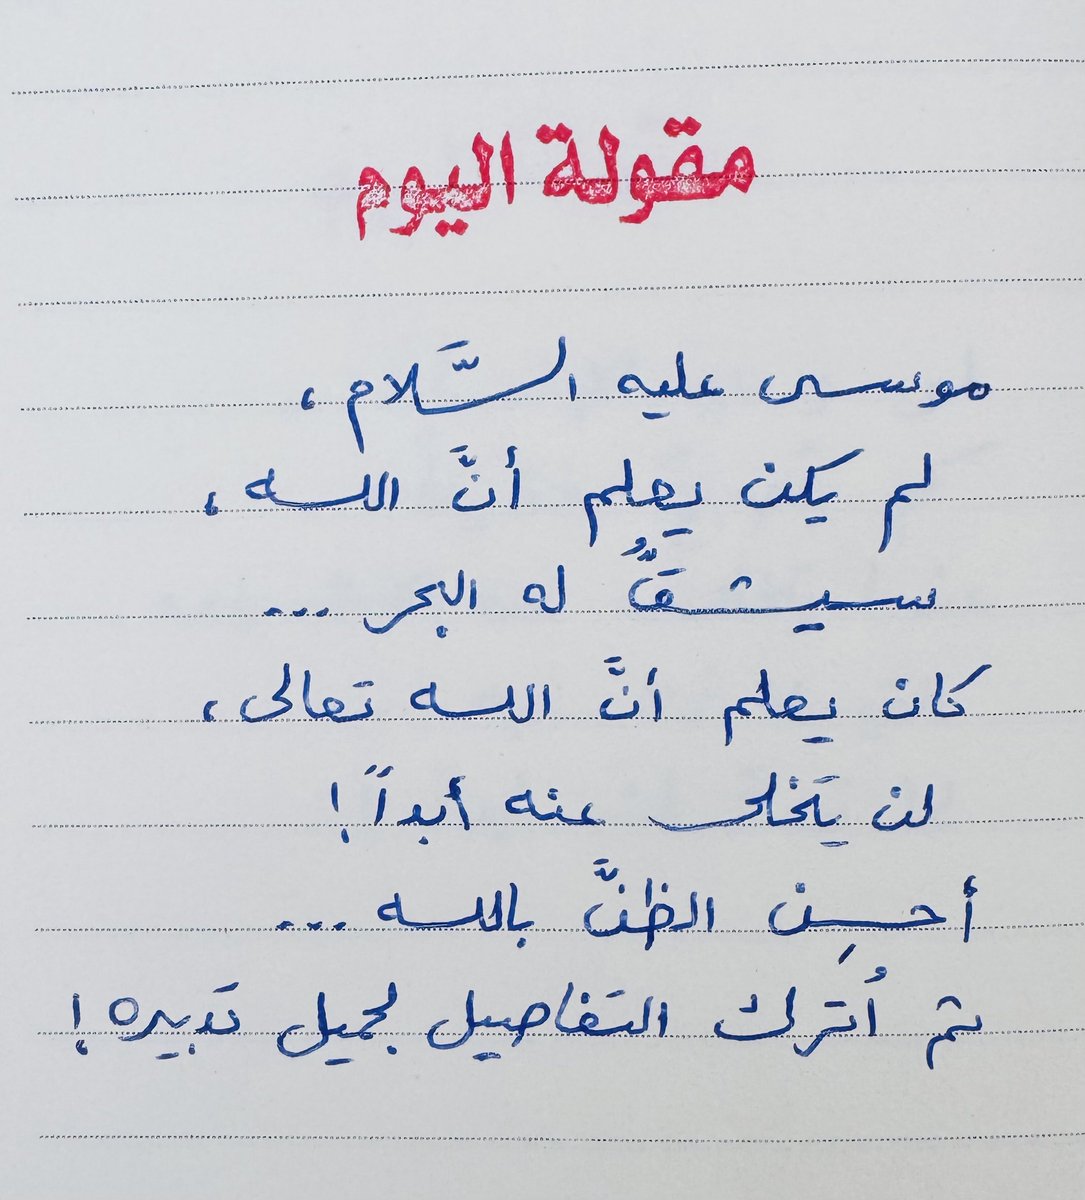 مقولة اليوم
موسى عليه السَّلام،
لم يكن يعلم أنَّ الله،
سيشقُّ له البحر ...
كان يعلم أنَّ الله تعالى،
لن يَتخلى عنه أبداً!
أحسِن الظنَّ بالله ...
ثم أُترك التفاصيل لجميل تدبيره!